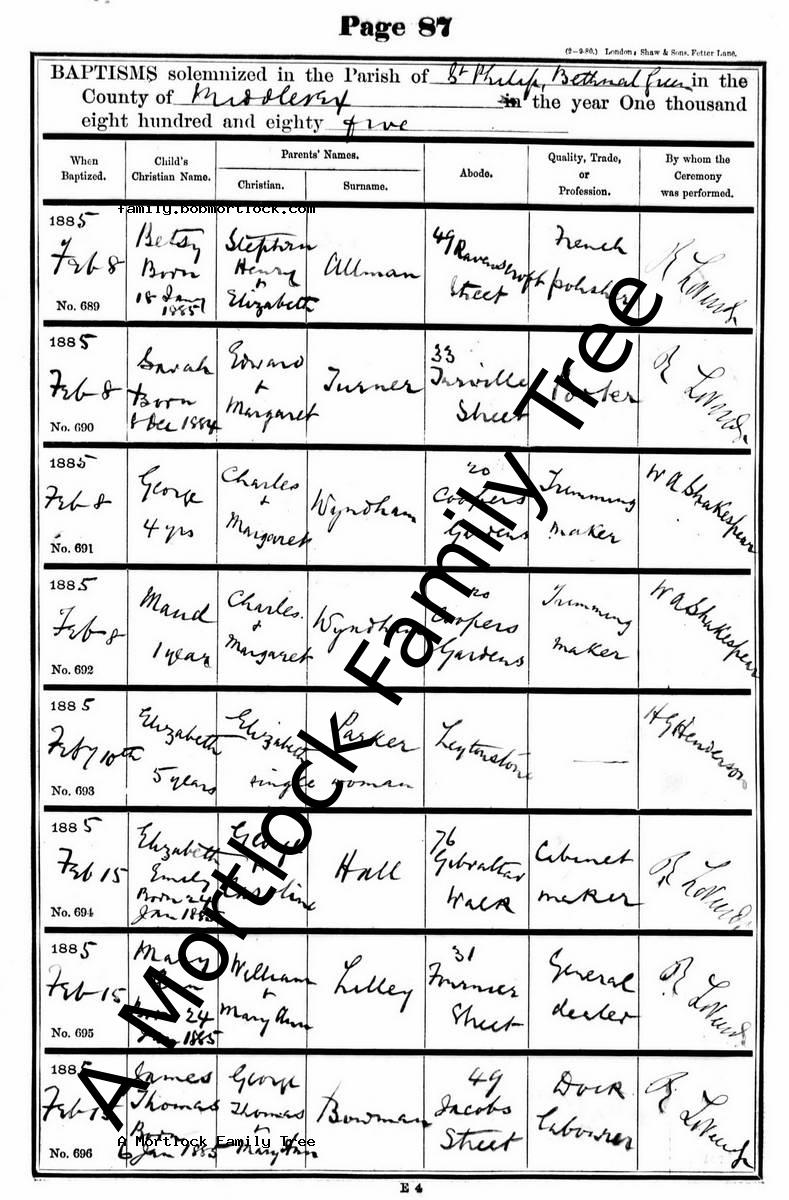 Page 87
(2-9-80.) London: Shaw & Sons, Fetter Lane.
BAPTISMS solemnized in the Parish of St Philip, Bethnal Green in the
County of Middlesex in the year One thousand
eight hundred and eighty five
When Baptized.
Child's Christian Name.
Parents' Names.
Christian.
Surname.
Abode.
Quality, Trade, or Profession.
By whom the Ceremony was performed.
family.bobmortlock.com
1885
Feb 8
No. 689
Betsy
Born
18 Jany
1885
Stephen
Henry
&
Elizabeth
Allman
49 Ravenscroft
Street
French
polisher
R Loveridge
1885
Feb 8
No. 690
Sarah
Born
8 Dec 1884
Edward
+
Margaret
Turner
33
Turville
Street
Porter
R Loveridge
1885
Feb 8
No. 691
George
4 yrs
Charles
+
Margaret
Wyndham
20
Coopers
Gardens
Trimming
maker
W A Shakespear
1885
Feb 8
No. 692
Maud
1 year
Charles
+
Margaret
Wyndham
20
Coopers
Gardens
Trimming
maker
W A Shakespear
1885
Feby 10th
No. 693
Elizabeth
5 years
Elizabeth
single woman
Parker
Leytonstone
H G Henderson
1885
Feb 15
No. 694
Elizabeth
Emily
Born 24
Jan 1885
George
&
Caroline
Hall
76
Gibraltar
Walk
Cabinet
maker
R Loveridge
1885
Feb 15
No. 695
Mary
Born 24
Jan 1885
William
+
Mary Ann
Lilley
31
Fournier
Street
General
dealer
R Loveridge
1885
Feb 15
No. 696
James
Thomas
Born
6 Jan 1885
George
Thomas
&
Mary Ann
Bowman
49
Jacobs
Street
Dock
labourer
R Loveridge
A Mortlock Family Tree
A Mortlock Family Tree
E 4